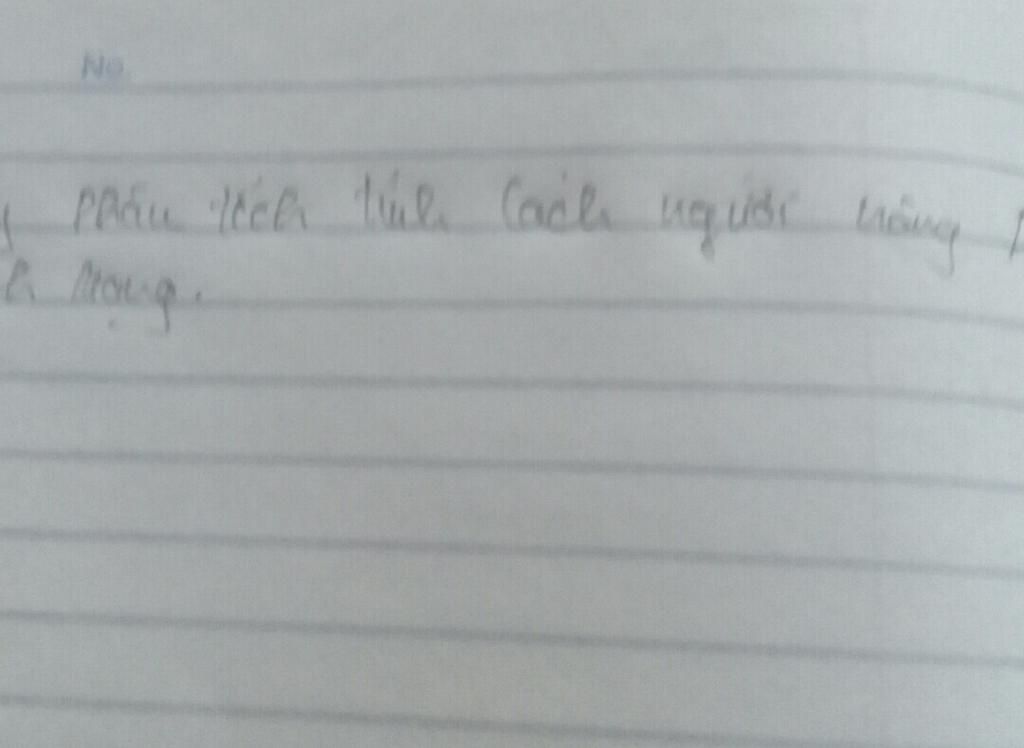 No.
phân tích tính cách người nông
mạng.